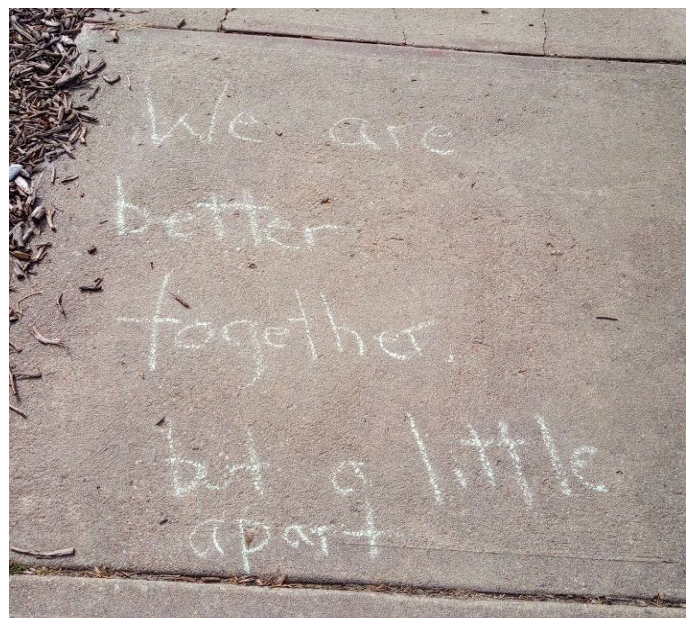 We are
better
together.
but a little
apart